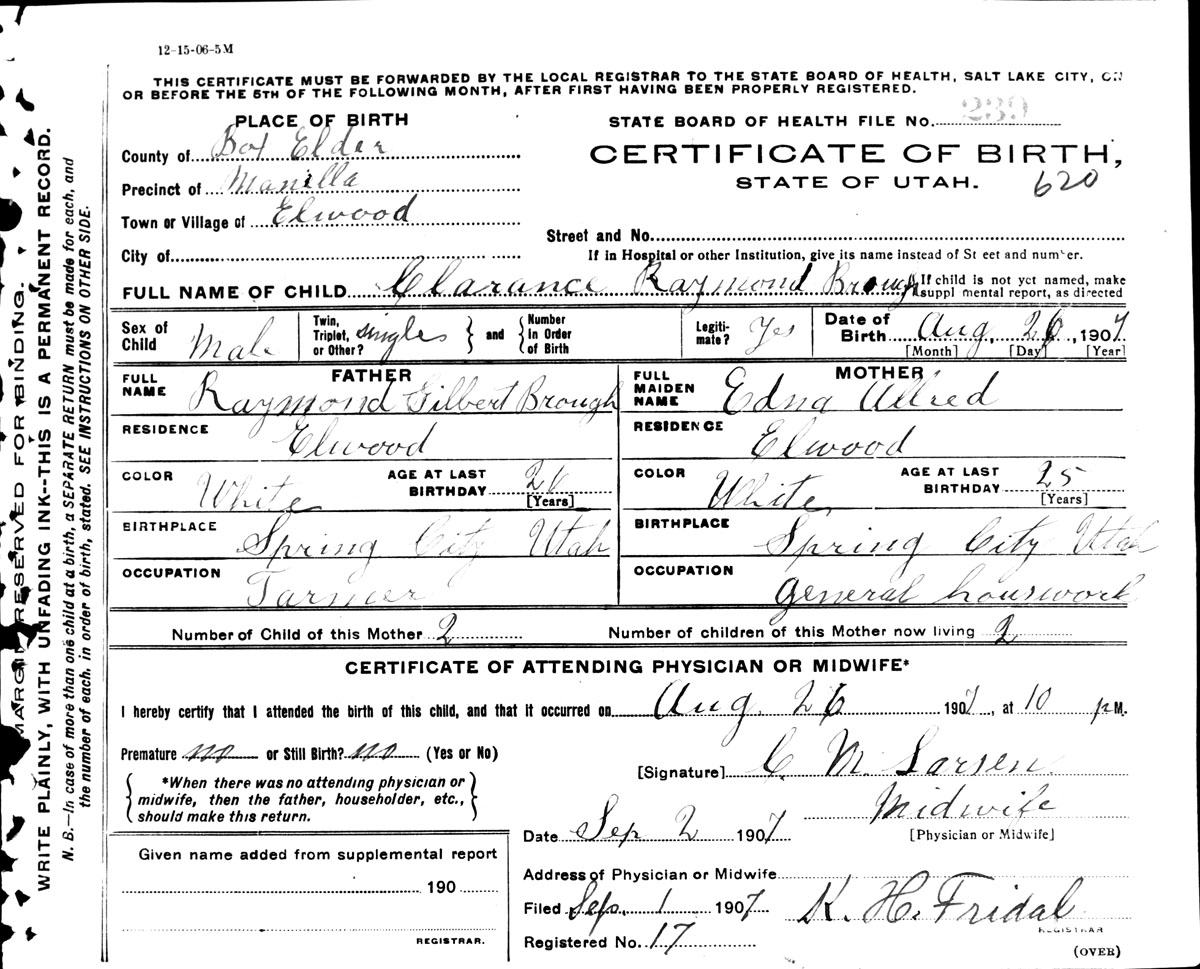 12-15-06-5M
THIS CERTIFICATE MUST BE FORWARDED BY THE LOCAL REGISTRAR TO THE STATE BOARD OF HEALTH, SALT LAKE CITY, ON
OR BEFORE THE 5TH OF THE FOLLOWING MONTH, AFTER FIRST HAVING BEEN PROPERLY REGISTERED.
PLACE OF BIRTH
County of Box Elder
Precinct of Manilla
Town or Village of Elwood
City of
STATE BOARD OF HEALTH FILE No. 239
CERTIFICATE OF BIRTH,
STATE OF UTAH. 620
Street and No.
If in Hospital or other Institution, give its name instead of St eet and number.
FULL NAME OF CHILD Clarance Raymond Brough
If child is not yet named, make
suppl mental report, as directed
Sex of Child Male
Twin, Triplet, or Other? singles and Number in Order of Birth
Legiti-mate? Yes
Date of Birth Aug. 26, 1907
[Month] [Day] [Year]
FATHER
FULL NAME Raymond Gilbert Brough
RESIDENCE Elwood
COLOR White AGE AT LAST BIRTHDAY 26 [Years]
BIRTHPLACE Spring City Utah
OCCUPATION Farmer
MOTHER
FULL MAIDEN NAME Edna Allred
RESIDENCE Elwood
COLOR White AGE AT LAST BIRTHDAY 25 [Years]
BIRTHPLACE Spring City Utah
OCCUPATION general housework
Number of Child of this Mother 2 Number of children of this Mother now living 2
CERTIFICATE OF ATTENDING PHYSICIAN OR MIDWIFE*
I hereby certify that I attended the birth of this child, and that it occurred on Aug. 26 1907, at 10 p M.
Premature no or Still Birth? no (Yes or No)
*When there was no attending physician or
midwife, then the father, householder, etc.,
should make this return.
[Signature] C. M. Larsen
Midwife
[Physician or Midwife]
Date Sep 2 1907
Given name added from supplemental report
190
REGISTRAR.
Address of Physician or Midwife
Filed Sep. 1 1907 K. H. Fridal
REGISTRAR
Registered No. 17
(OVER)
MARGIN RESERVED FOR BINDING.
WRITE PLAINLY, WITH UNFADING INK--THIS IS A PERMANENT RECORD.
N. B.—In case of more than one child at a birth, a SEPARATE RETURN must be made for each, and
the number of each, in order of birth, stated. SEE INSTRUCTIONS ON OTHER SIDE.